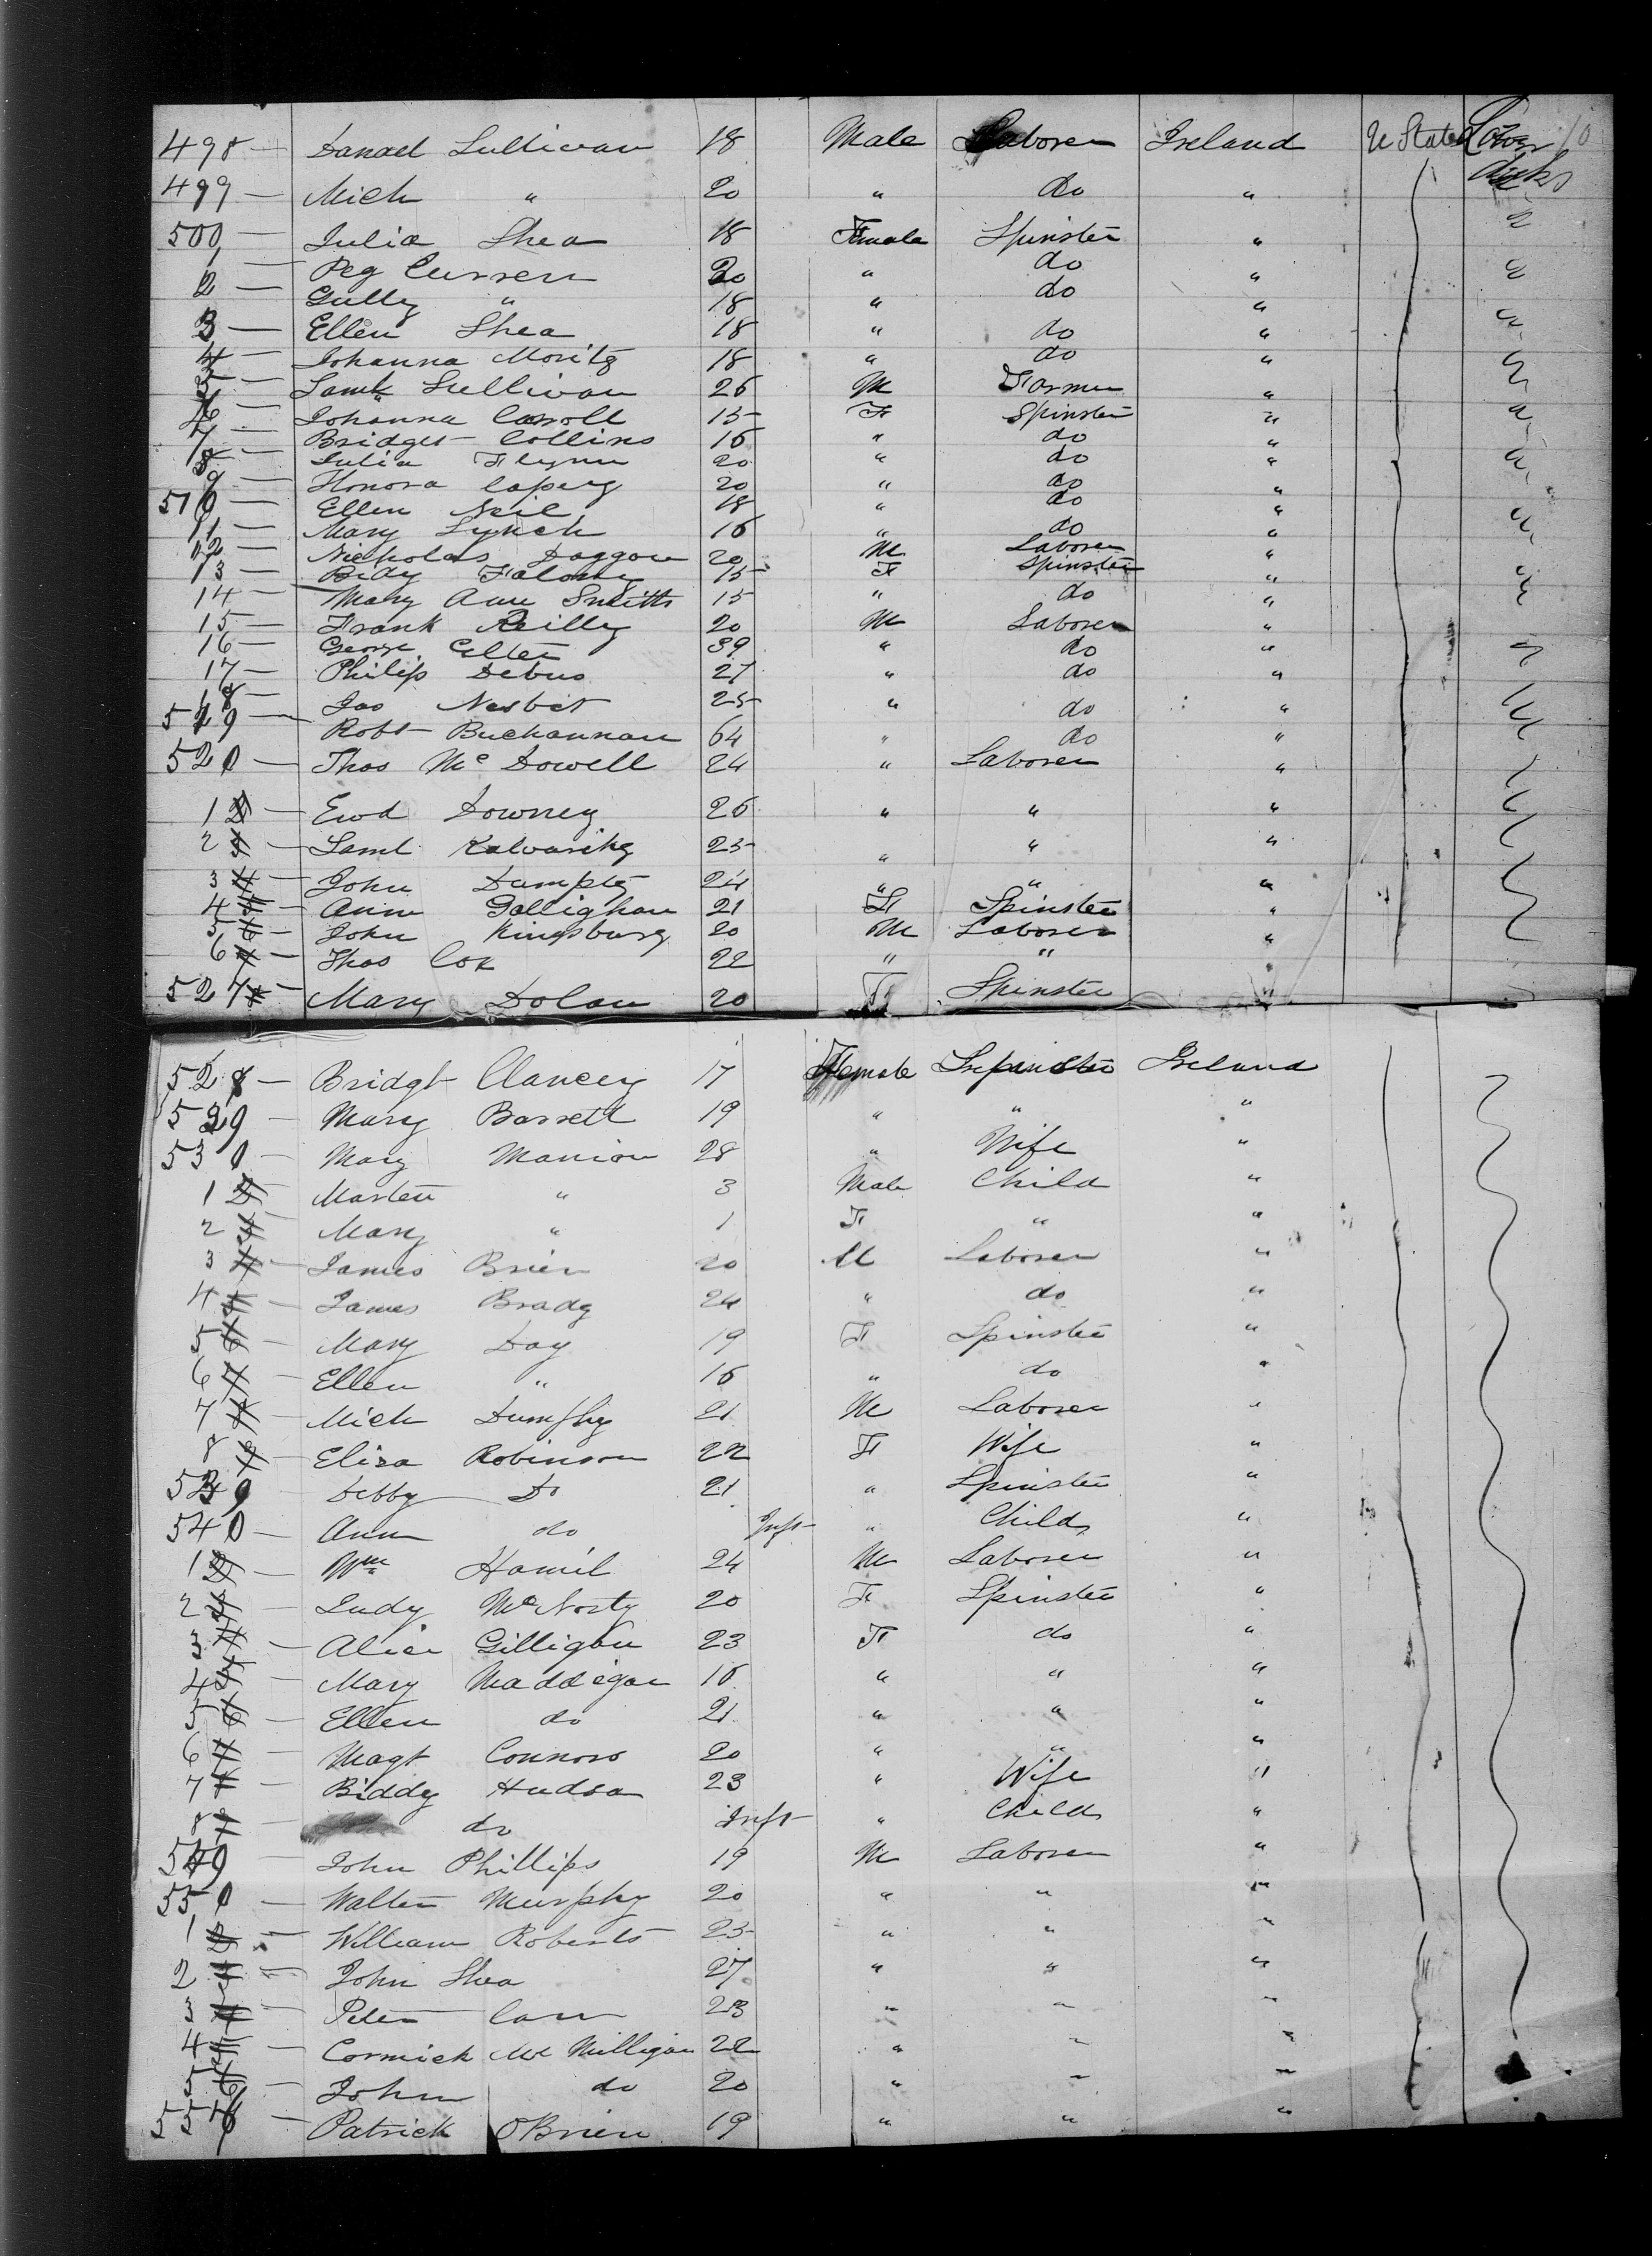 498 — Danael Sullivan 18 Male Laborer Ireland U States Lower decks 10
499 — Mich " 20 " do "
500 — Julia Shea 18 Female Spinster "
Peg Curren 20 " do "
2 — Gully " 18 " do "
3 — Ellen Shea 18 " do "
4 — Johanna Moritz 18 " do "
5 — Saml Sullivan 26 M Farmer "
6 — Johanna Carroll 15 F Spinster "
7 — Bridget Collins 16 " do "
8 — Julia Flynn 20 " do "
9 — Honora 20 " do "
510 — Ellen Neil 18 " do "
11 — Mary Lynch 16 " do "
12 — Nicholas Daggon 20 M Laborer "
13 — Bidy 15 F Spinster "
14 — Mary Ann Smith 15 " do "
15 — Frank Reilly 20 M Laborer "
16 — George 39 " do "
17 — Philip Debus 27 " do "
18 — Jas Nesbit 25 " do "
519 — Robt Buchannan 64 " do "
520 — Thos Mc Dowell 24 " Laborer "
1 — Ewd Downey 26 " " "
2 — Saml 25 " " "
3 — John 24 " " "
4 — Ann Gallighan 21 F Spinster "
5 — John Kingsbury 20 M Laborer "
6 — Thos Cox 22 " " "
527 — Mary Dolan 20 F Spinster "
528 — Bridgt Clancey 17 Female Spinster Ireland
529 — Mary Barrett 19 " " "
530 — Mary Manion 28 " Wife "
1 — Marten " 3 Male Child "
2 — Mary " 1 F " "
3 — James Brien 20 M Laborer "
4 — James Brady 24 " do "
5 — Mary Day 19 F Spinster "
6 — Ellen " 16 " do "
7 — Mich Dumphy 21 M Laborer "
8 — Eliza Robinson 22 F Wife "
539 — Debby Do 21 " Spinster "
540 — Ann do Inft " Child "
1 — Wm Hamil 24 M Laborer "
2 — Judy McNorty 20 F Spinster "
3 — Alice Gilligan 23 F do "
4 — Mary Maddegan 16 " " "
5 — Ellen do 21 " " "
6 — Magt Connors 20 " " "
7 — Biddy Hudson 23 " Wife "
8 — do Inft " Child "
549 — John Phillips 19 M Laborer "
550 — Walter Murphy 20 " " "
1 — William Roberts 25 " " "
2 — John Shea 27 " " "
3 — Peter Carr 23 " " "
4 — Cormick Mc Milligan 22 " " "
5 — John do 20 " " "
556 — Patrick O'Brien 19 " " "